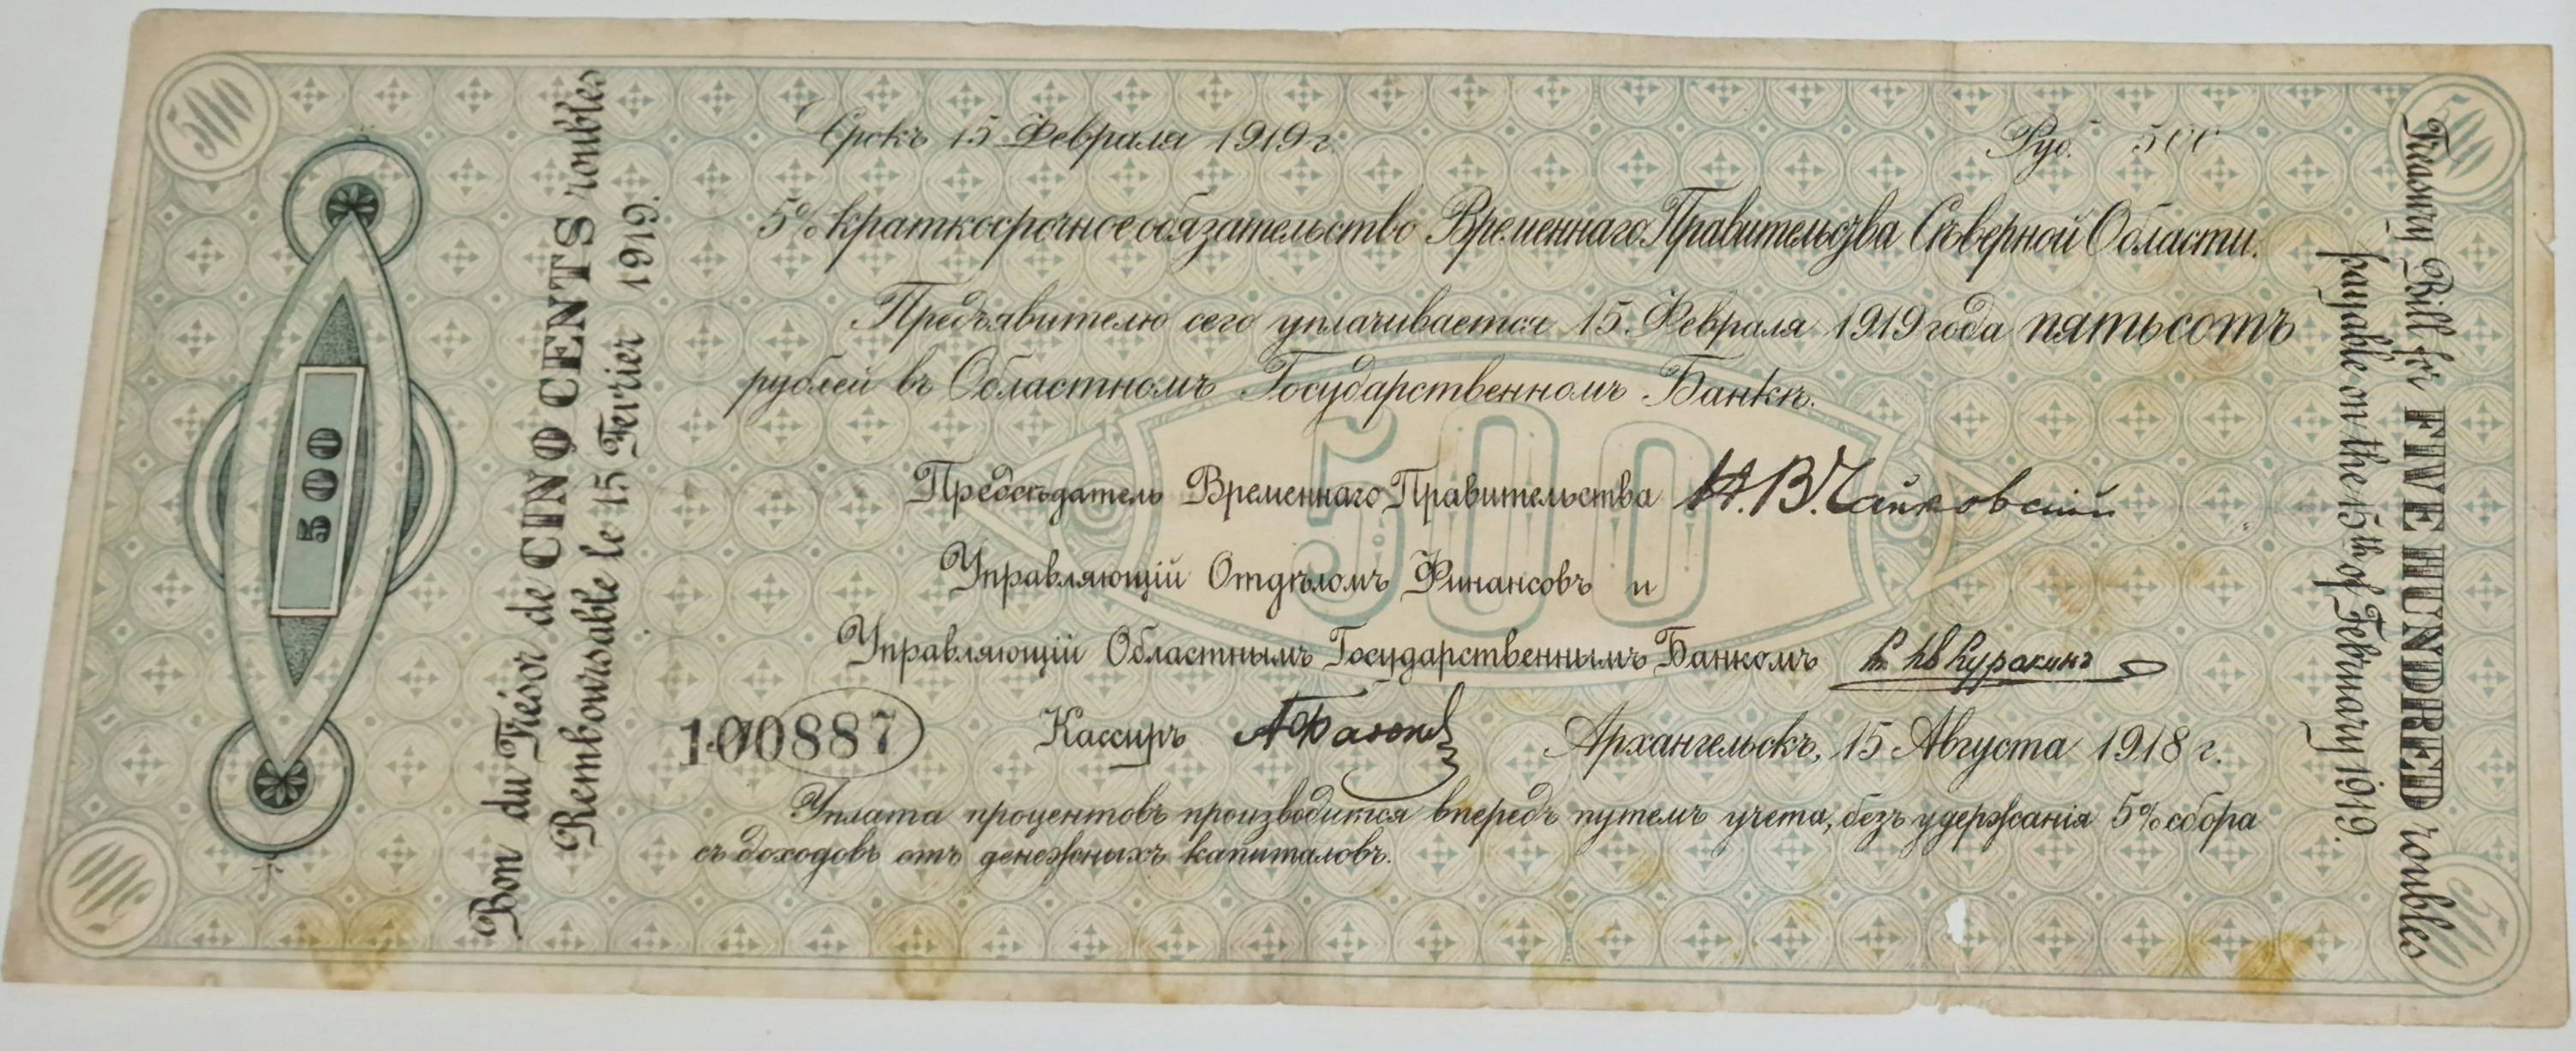 500
500
Срокъ 15 Февраля 1919 г.
Руб. 500
5% краткосрочное обязательство Временнаго Правительства Сѣверной Области.
Предъявителю сего уплачивается 15 Февраля 1919 года пятьсотъ
рублей въ Областномъ Государственномъ Банкѣ.
500
500
Предсѣдатель Временнаго Правительства Н. В. Чайковскій
Управляющій Отдѣломъ Финансовъ и
Управляющій Областнымъ Государственнымъ Банкомъ Куракинъ
100887
Кассиръ
Архангельскъ, 15 Августа 1918 г.
Уплата процентовъ производится впередъ путемъ учета, безъ удержанія 5% сбора
съ доходовъ отъ денежныхъ капиталовъ.
Bon du Trésor de CINQ CENTS roubles
Remboursable le 15 Fevrier 1919.
Treasury Bill for FIVE HUNDRED roubles
payable on the 15th of February 1919.
500
500